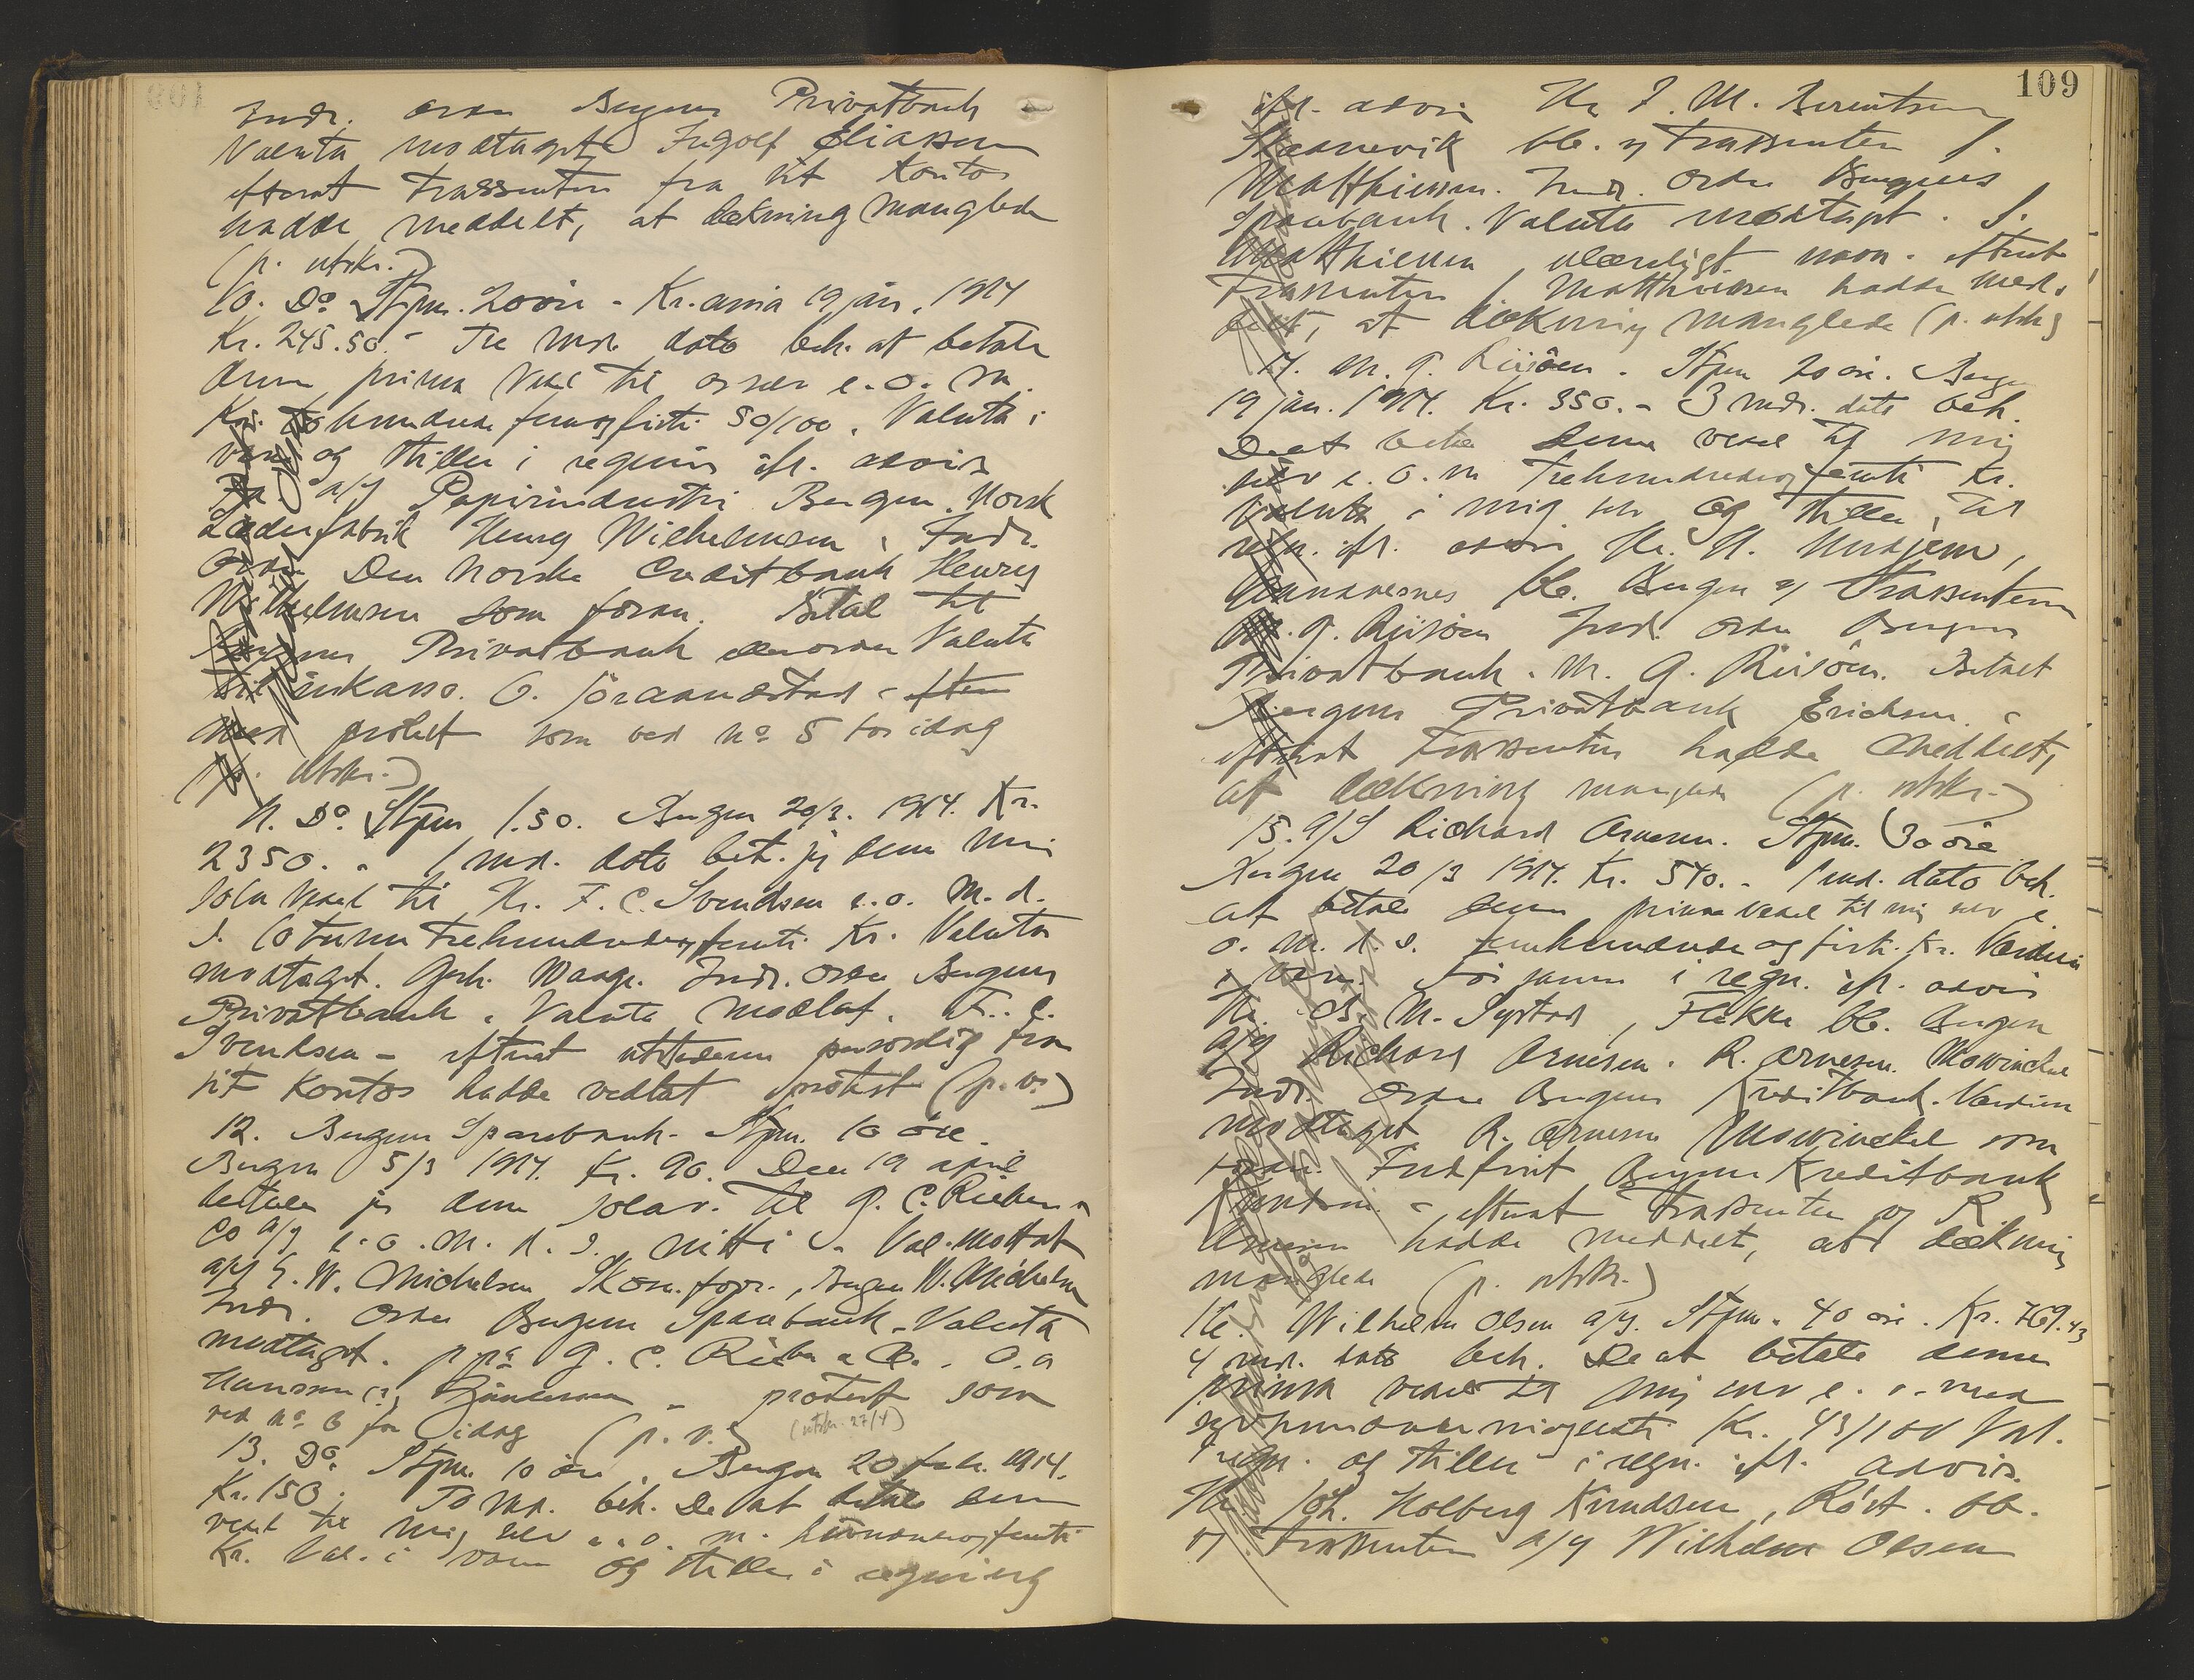 Indr. ordre Bergens Privatbank
Valuta modtaget Ingolf Eliassen
efterat trassenten fra sit kontor
hadde meddelt, at dækning manglede
(p. utskr.)
10. Do Stpm. 20 øre - Kr.ania 19 jan. 1914
Kr. 245.50.- Tre mdr. dato beh. at betale
denne prima vexel til os selv e. o. m.
Kr. tohundrede femogfirti 50/100. Valuta i
varer og stilles i regning ifl. advis
Til a/s Papirindustri Bergen. Norsk
Læderfabrik Henry Wilhelmsen. Indr.
Ordre Den norske Creditbank Henry
Wilhelmsen som foran. Betal til
Bergens Privatbank ordre Valuta
til inkasso. O. - eftera
med protest som ved no 5 for idag
(p. utskr.)
11. Do. Stpm 1.50. Bergen 20/3. 1914. Kr.
2350. - 1 md. dato bet. jeg denne min
sola vexel til Hr. F. C. Svendsen e. o. m. d.
s. totusen trehundredeogfemti Kr. Valuta
modtaget. Gerh. Waage. Indr. Ordre Bergens
Privatbank. Valuta modtat. F. C.
Svendsen - efterat utstederen personlig fra
sit kontor hadde vedtat protest (p. v.)
12. Bergens Sparebank. Stpm. 10 øre.
Bergen 5/3 1914. Kr. 90. Den 19 april
betaler jeg denne solav. til G. C. Rieber &
Co a/s e. o. m. d. s. nitti - Val. mottat
a/s E. W. Michelsen Skom.forr., Bergen W. Michelsen
Indr. Ordre Bergens Sparebank. Valuta
modtaget. p pa G. C. Rieber & Co. O. A
Hansen - protest som
ved no 6 for idag (p. v.) (utskr. 27/4)
13. Do. Stpm. 10 øre. Bergen 20 febr. 1914.
Kr. 150. To mdr. beh. De at betale denne
vexel til mig selv e. o. m. hundredeogfemti
Kr. Val. i varer og stilles i regning
109
ifl. advis Hr J. M. Berentsen
Skaanevik bb. og trassenten J.
Matthiessen. Indr. Ordre Bergens
Sparebank. Valuta modtaget. J.
Matthiessen, ulæseligt navn. efterat
trassenten J Matthiessen hadde med-
delt, at dækning manglede (p. utskr)
14. M. G. Riisöen. Stpm 20 øre. Bergen
19 jan. 1914. Kr. 350. - 3 mdr. dato beh.
De at betale denne vexel til mig
selv e. o. m trehundredeogfemti Kr.
Valuta i mig selv og stilles til
regn. ifl. advis Hr. H.
bb. Bergen og trassenten
M. G. Riisöen Indr. Ordre Bergens
Privatbank. M. G. Riisöen. Betalt
Bergens Privatbank Erichsen. -
efterat trassenten hadde meddelt,
at dækning manglede (p. utskr.)
15. A/S Richard Arnesen. Stpm. 30 øre
Bergen 20/3 1914. Kr. 540. - 1 md. dato beh.
at betale denne prima vexel til mig selv e
o. m. d. s. femhundrede og firti Kr. Værdien
i varer. Föi samme i regn. ifl. advis
Hr. O. M. Systad, Flekke bb. Bergen
A/S Richard Arnesen. R. Arnesen Mowinckel
Indr. Ordre Bergens Kreditbank. Værdien
modtaget R. Arnesen Mowinckel som
foran. Indfriet Bergens Kreditbank
- efterat trassenten og R.
Arnesen hadde meddelt, at dækning
manglede (p. utskr.)
16. Wilhelm Olsen a/s. Stpm. 40 øre. Kr. 769.43
4 mdr. dato beh. De at betale denne
prima vexel til mig selv e. o. med
syvhundrede Kr. 43/100 Val.
i regn. og stilles i regn. ifl. advis.
Hr. Joh. Holberg Knudsen, Röst. bb.
og trassenten A/S Wilhelm Olsen